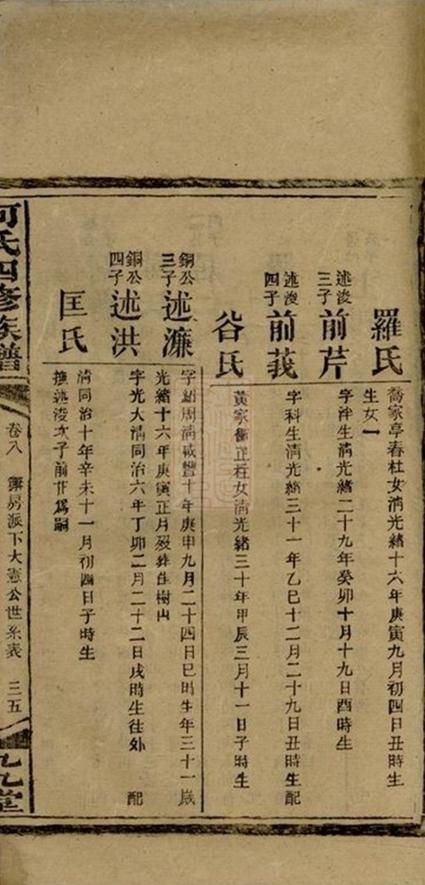 羅氏
喬家亭春社女清光緒十六年庚寅九月初四日丑時生
生女一
述浚三子
前芹
字泮生清光緒二十九年癸卯十月十九日酉時生
述浚四子
前莪
字科生清光緒三十一年乙巳十二月二十九日丑時生配
谷氏
黃家 正社女清光緒三十年甲辰三月十一日子時生
銅公三子
述濂
字 周清咸豐十年庚申九月二十四日巳時生年三十一歲
光緒十六年庚寅正月歿葬 樹山
銅公四子
述洪
字光大清同治六年丁卯二月二十二日戌時生往外 配
匡氏
清同治十年辛未十一月初四日子時生
撫述浚次子前 為嗣
何氏四修族譜
卷八 房派下大憲公世系表 三五
九九堂